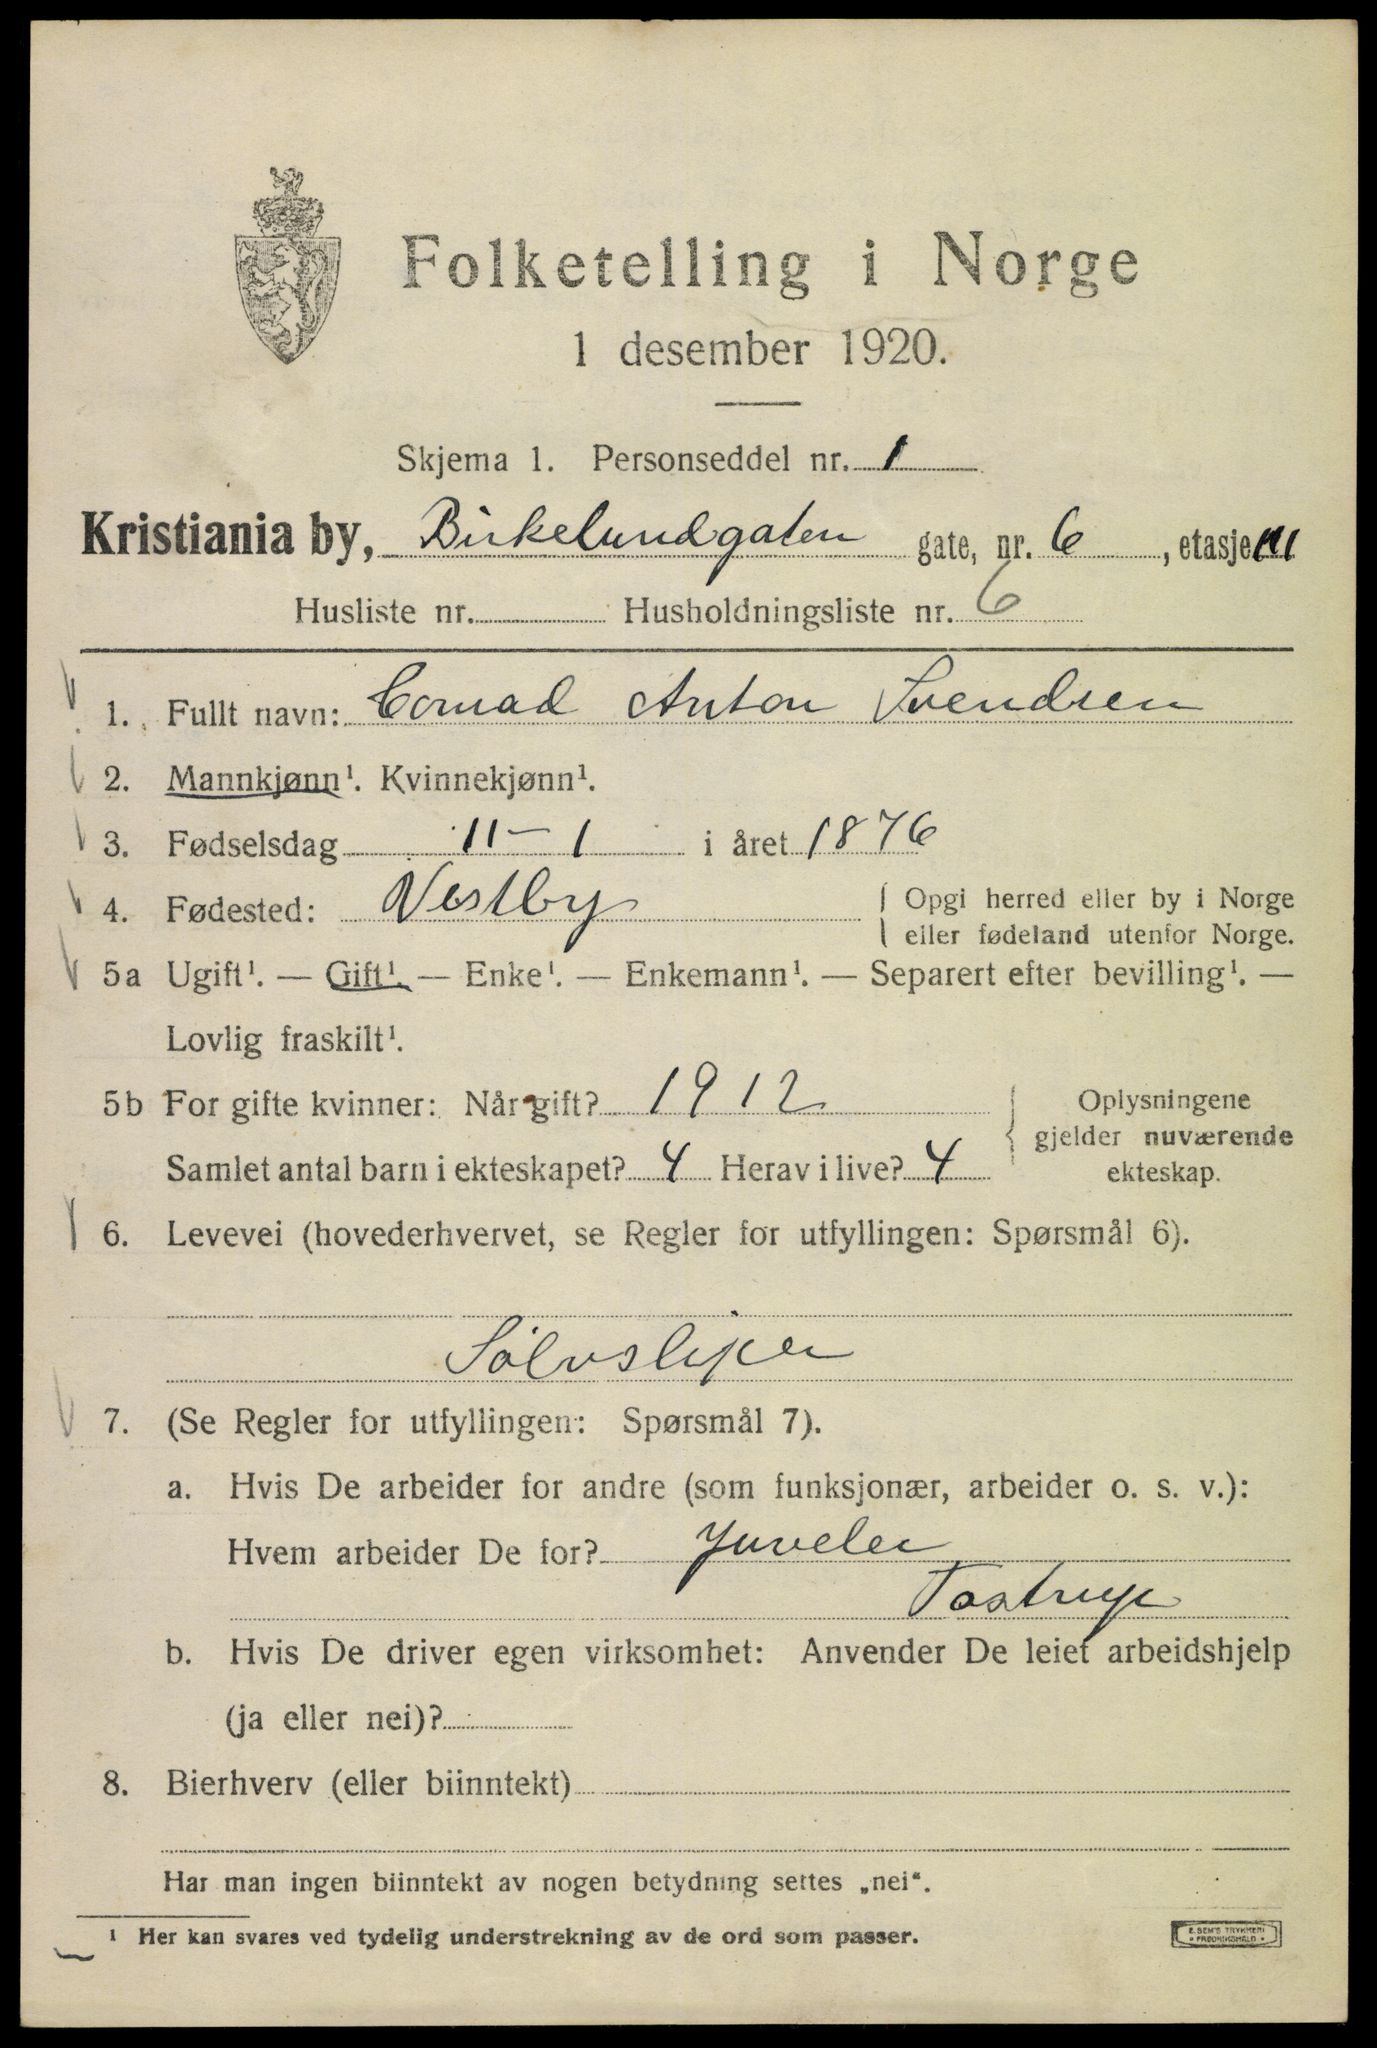 Folketelling i Norge
1 desember 1920.
Skjema 1. Personseddel nr. 1
Kristiania by, Birkelundgaten gate, nr. 6, etasje III
Husliste nr. Husholdningsliste nr. 6
1. Fullt navn: Conrad Anton Svendsen
2. Mannkjønn¹. Kvinnekjønn¹.
3. Fødselsdag 11-1 i året 1876
4. Fødested: Vestby
Opgi herred eller by i Norge
eller fødeland utenfor Norge.
5a Ugift¹. — Gift¹. — Enke¹. — Enkemann¹. — Separert efter bevilling¹. —
Lovlig fraskilt¹.
5b For gifte kvinner: Når gift? 1912
Samlet antal barn i ekteskapet? 4 Herav i live? 4
Oplysningene
gjelder nuværende
ekteskap.
6. Levevei (hovederhvervet, se Regler for utfyllingen: Spørsmål 6).
Sølvsliper
7. (Se Regler for utfyllingen: Spørsmål 7).
a. Hvis De arbeider for andre (som funksjonær, arbeider o. s. v.):
Hvem arbeider De for? Juveler
Tostrup
b. Hvis De driver egen virksomhet: Anvender De leiet arbeidshjelp
(ja eller nei)?
8. Bierhverv (eller biinntekt)
Har man ingen biinntekt av nogen betydning settes „nei“.
¹ Her kan svares ved tydelig understrekning av de ord som passer.
E. SEM'S TRYKKERI
FREDRIKSHALD